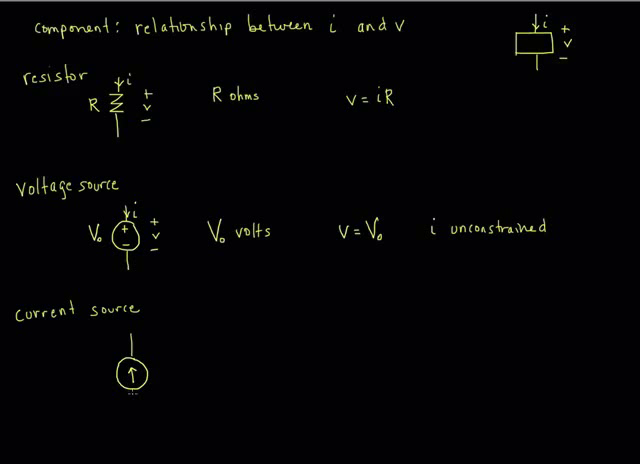 component: relationship between i and v
i + v −
resistor
R i + v − R ohms v = iR
Voltage source
V₀ + − i + v − V₀ volts v = V₀ i unconstrained
current source